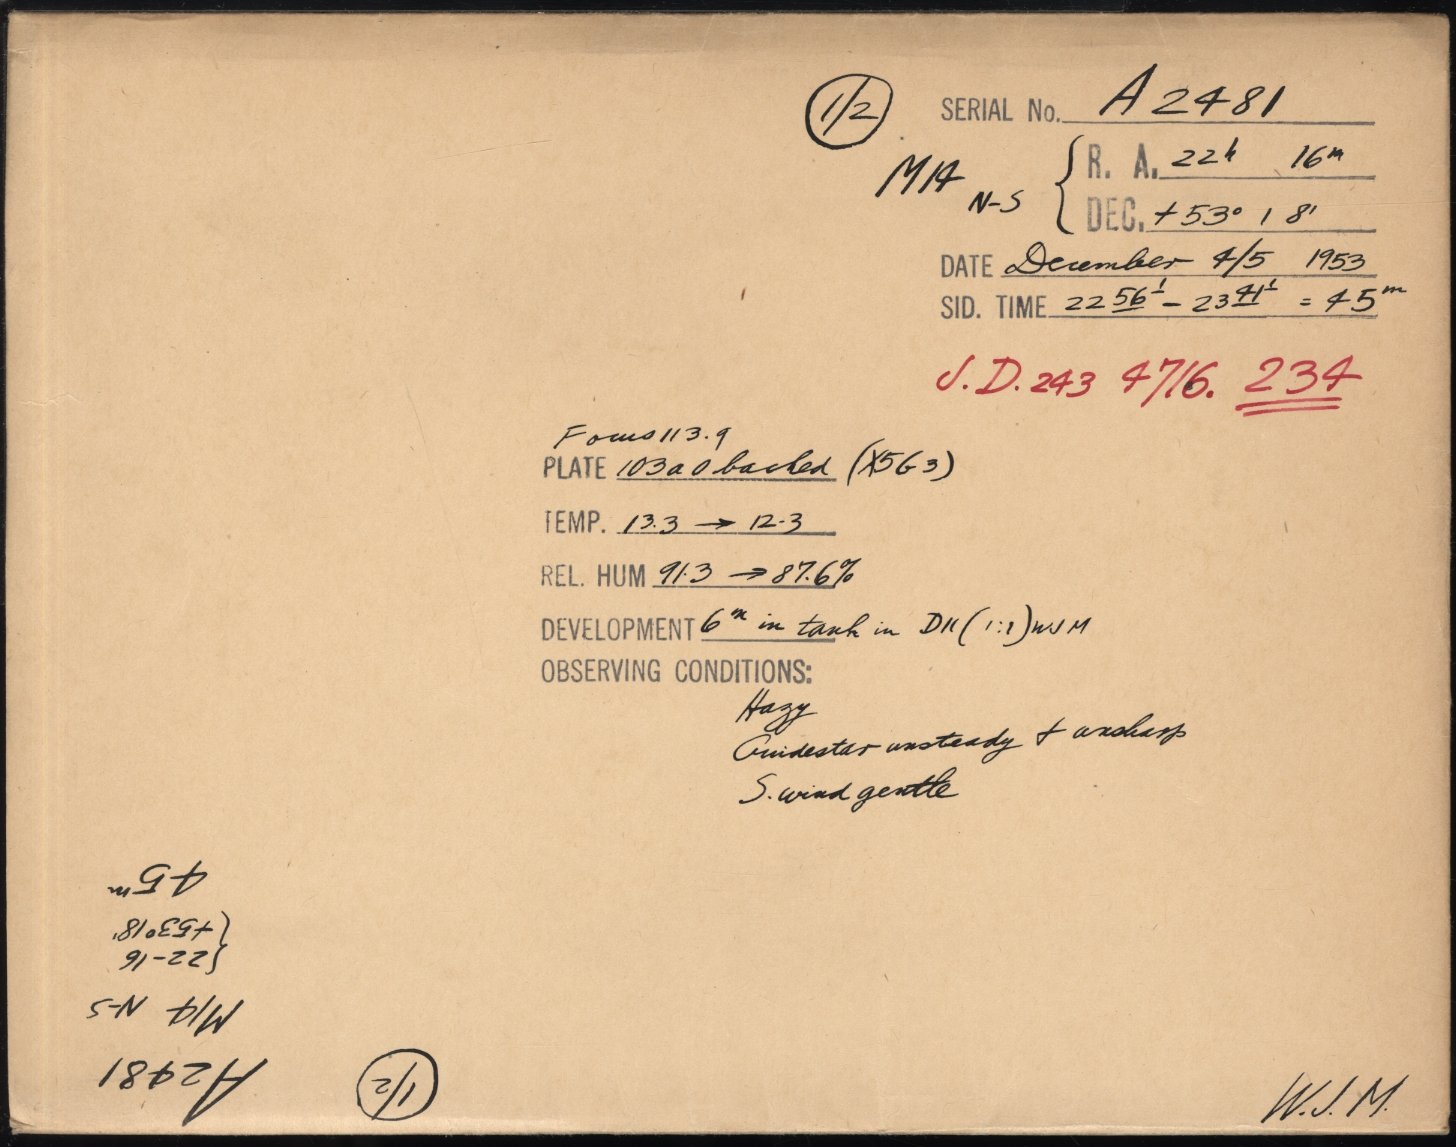 1/2 SERIAL No. A2481
M14 N-S { R. A. 22h 16m
DEC. +53° 18'
DATE December 4/5 1953
SID. TIME 22 56½ - 23 41½ = 45m
J.D. 243 4716. 234
Focus 113.9
PLATE 103a0 backed (X5G3)
TEMP. 13.3 → 12.3
REL. HUM 91.3 → 87.6%
DEVELOPMENT 6m in tank in D11 (1:1) WJM
OBSERVING CONDITIONS:
Hazy
Guidestar unsteady + unsharp
S. wind gentle
A2481 1/2
M14 N-S
{ 22-16
+53°18'
45m
W.J.M.